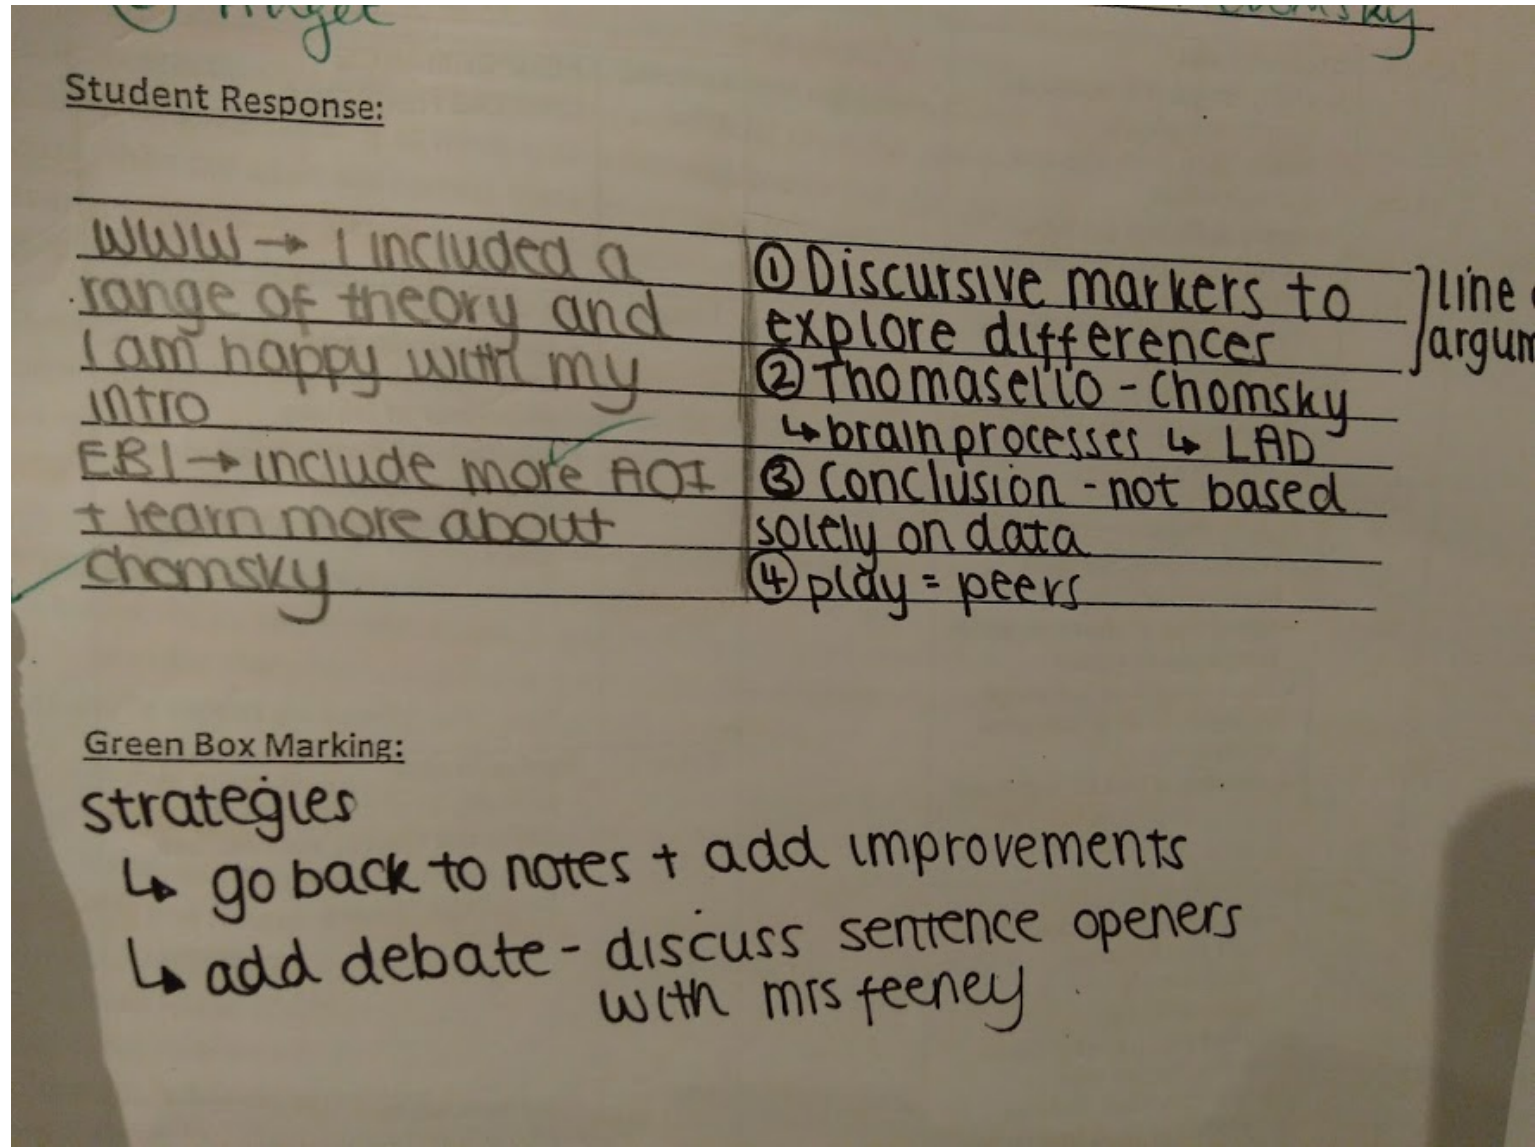 Student Response:
WWW → I included a
range of theory and
I am happy with my
intro
EBI → include more AO1
+ learn more about
chomsky
① Discursive markers to
explore differences
line
argum
② Thomasello - Chomsky
↳ brain processes ↳ LAD
③ Conclusion - not based
solely on data
④ play = peers
Green Box Marking:
strategies
↳ go back to notes + add improvements
↳ add debate - discuss sentence openers
with mrs feeney